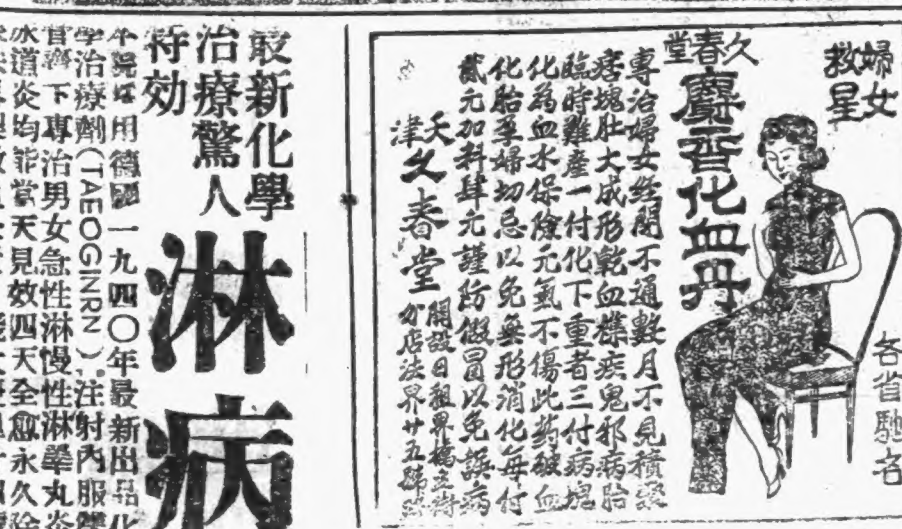 婦女
救星
各省馳名
久春堂
麝香化血丹
專治婦女經閉不通數月不見積聚
痞塊肚大成形乾血癆疾鬼邪病胎
臨時難產一付化下重者三付病塊
化為血水保險元氣不傷此药破血
化胎孕婦切忌以免無形消化每付
貳元加料肆元謹防假冒以免誤病
天津久春堂
開設日租界橋立街
分店法界廿五號路
最新化學
治療驚人
特効
淋病
用德國一九四〇年最新出品化
學治療劑(TAEOGINRN)注射內服
管齊下專治男女急性淋慢性淋睪丸炎
水道炎均能當天見效四天全愈永久除